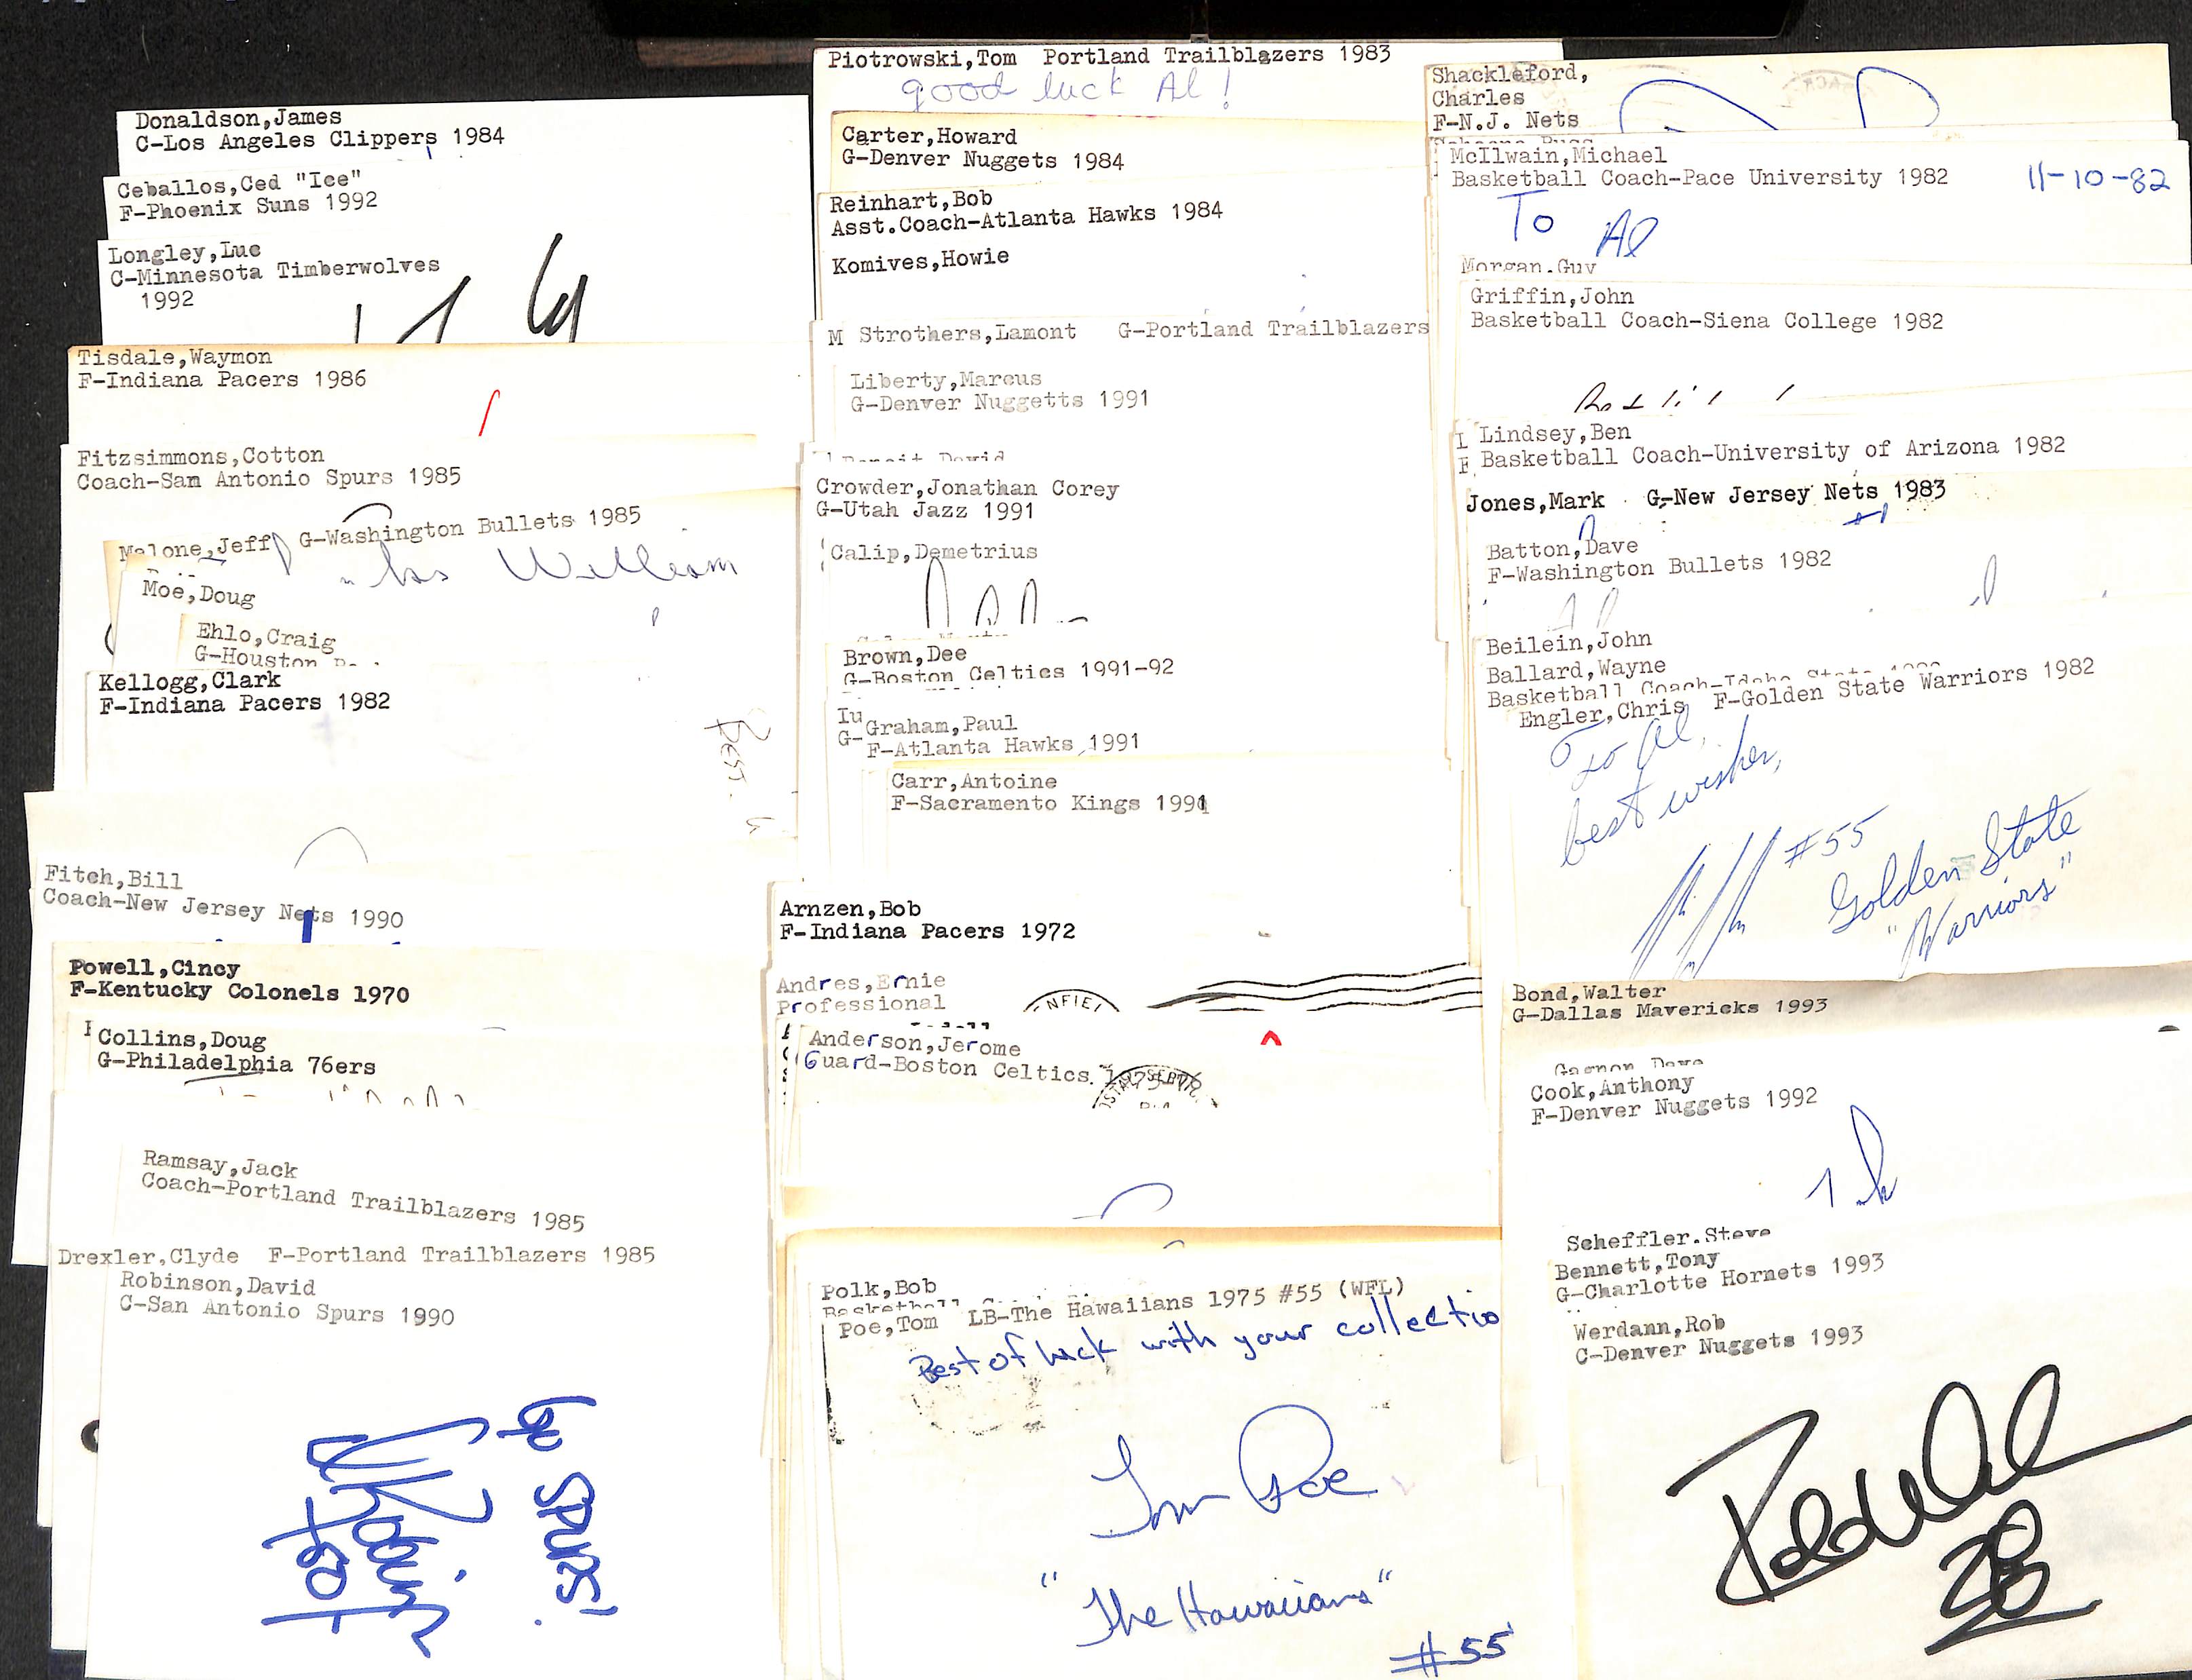 Donaldson,James
C-Los Angeles Clippers 1984
Ceballos,Ced "Ice"
F-Phoenix Suns 1992
Longley,Luc
C-Minnesota Timberwolves
1992
Tisdale,Waymon
F-Indiana Pacers 1986
Fitzsimmons,Cotton
Coach-San Antonio Spurs 1985
Malone,Jeff G-Washington Bullets 1985
William
Moe,Doug
Ehlo,Craig
G-Houston
Kellogg,Clark
F-Indiana Pacers 1982
Best
Fitch,Bill
Coach-New Jersey Nets 1990
Powell,Cincy
F-Kentucky Colonels 1970
Collins,Doug
G-Philadelphia 76ers
Ramsay,Jack
Coach-Portland Trailblazers 1985
Drexler,Clyde F-Portland Trailblazers 1985
Robinson,David
C-San Antonio Spurs 1990
Go SPURS!
Piotrowski,Tom Portland Trailblazers 1983
good luck Al!
Carter,Howard
G-Denver Nuggets 1984
Reinhart,Bob
Asst.Coach-Atlanta Hawks 1984
Komives,Howie
M Strothers,Lamont G-Portland Trailblazers
Liberty,Marcus
G-Denver Nuggetts 1991
Benoit David
Crowder,Jonathan Corey
G-Utah Jazz 1991
Calip,Demetrius
Brown,Dee
G-Boston Celtics 1991-92
Iu
G-
Graham,Paul
F-Atlanta Hawks 1991
Carr,Antoine
F-Sacramento Kings 1991
Arnzen,Bob
F-Indiana Pacers 1972
Andres,Ernie
Professional
NFIEL
Anderson,Jerome
Guard-Boston Celtics
Polk,Bob
Basketball
Poe,Tom LB-The Hawaiians 1975 #55 (WFL)
Best of luck with your collectio
Tom Poe
"The Hawaiians"
#55
Shackleford,
Charles
F-N.J. Nets
McIlwain,Michael
Basketball Coach-Pace University 1982
11-10-82
To Al
Morgan.Guy
Griffin,John
Basketball Coach-Siena College 1982
Lindsey,Ben
Basketball Coach-University of Arizona 1982
Jones,Mark G-New Jersey Nets 1983
Batton,Dave
F-Washington Bullets 1982
Beilein,John
Ballard,Wayne
Basketball Coach-Idaho State
Engler,Chris F-Golden State Warriors 1982
To Al,
best wishes,
#55
Golden State
"Warriors"
Bond,Walter
G-Dallas Mavericks 1993
Gagnon Dave
Cook,Anthony
F-Denver Nuggets 1992
Scheffler.Steve
Bennett,Tony
G-Charlotte Hornets 1993
Werdann,Rob
C-Denver Nuggets 1993